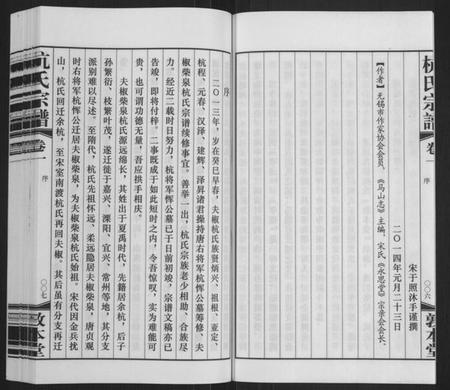 杭氏宗譜
卷一
序
〇〇六
敦本堂
宋于照沐手谨撰
二〇一四年元月二十三日
【作者】无锡市作家协会会员、《马山志》主编、宋氏《永思堂》宗亲会会长。
序
二〇一三年，岁在癸巳早春，夫椒杭氏族贤炳兴、祖根、亚定、
杭程、元春、汉泽、建辉、泽昇诸君操持唐右将军杭恽公墓筹修、夫
椒柴泉杭氏宗谱续修事宜。善举一出，杭氏宗族老少相助、合族尽
力。经近二载时日努力，杭将军恽公墓已于日前初竣，宗谱文稿亦已
告竣，即将付梓。二事既成于如此短时之内，令吾惊叹，实为难能可
贵，也可谓功德无量，吾应拱手相庆。
夫椒柴泉杭氏源远绵长，其姓出于夏禹时代，先籍居余杭，后子
孙繁衍、枝繁叶茂，遂迁徙于嘉兴、溧阳、宜兴、常州等地，其分支
派别难以尽述。至隋代，杭氏先祖怀远、柔远隐居夫椒柴泉，唐贞观
时右将军杭恽公迁居夫椒柴泉，为夫椒柴泉杭氏始祖。宋代因金兵扰
山，杭氏回迁余杭，至宋室南渡杭氏再回夫椒。其后虽有分支再迁
杭氏宗譜
卷一
序
〇〇七
敦本堂